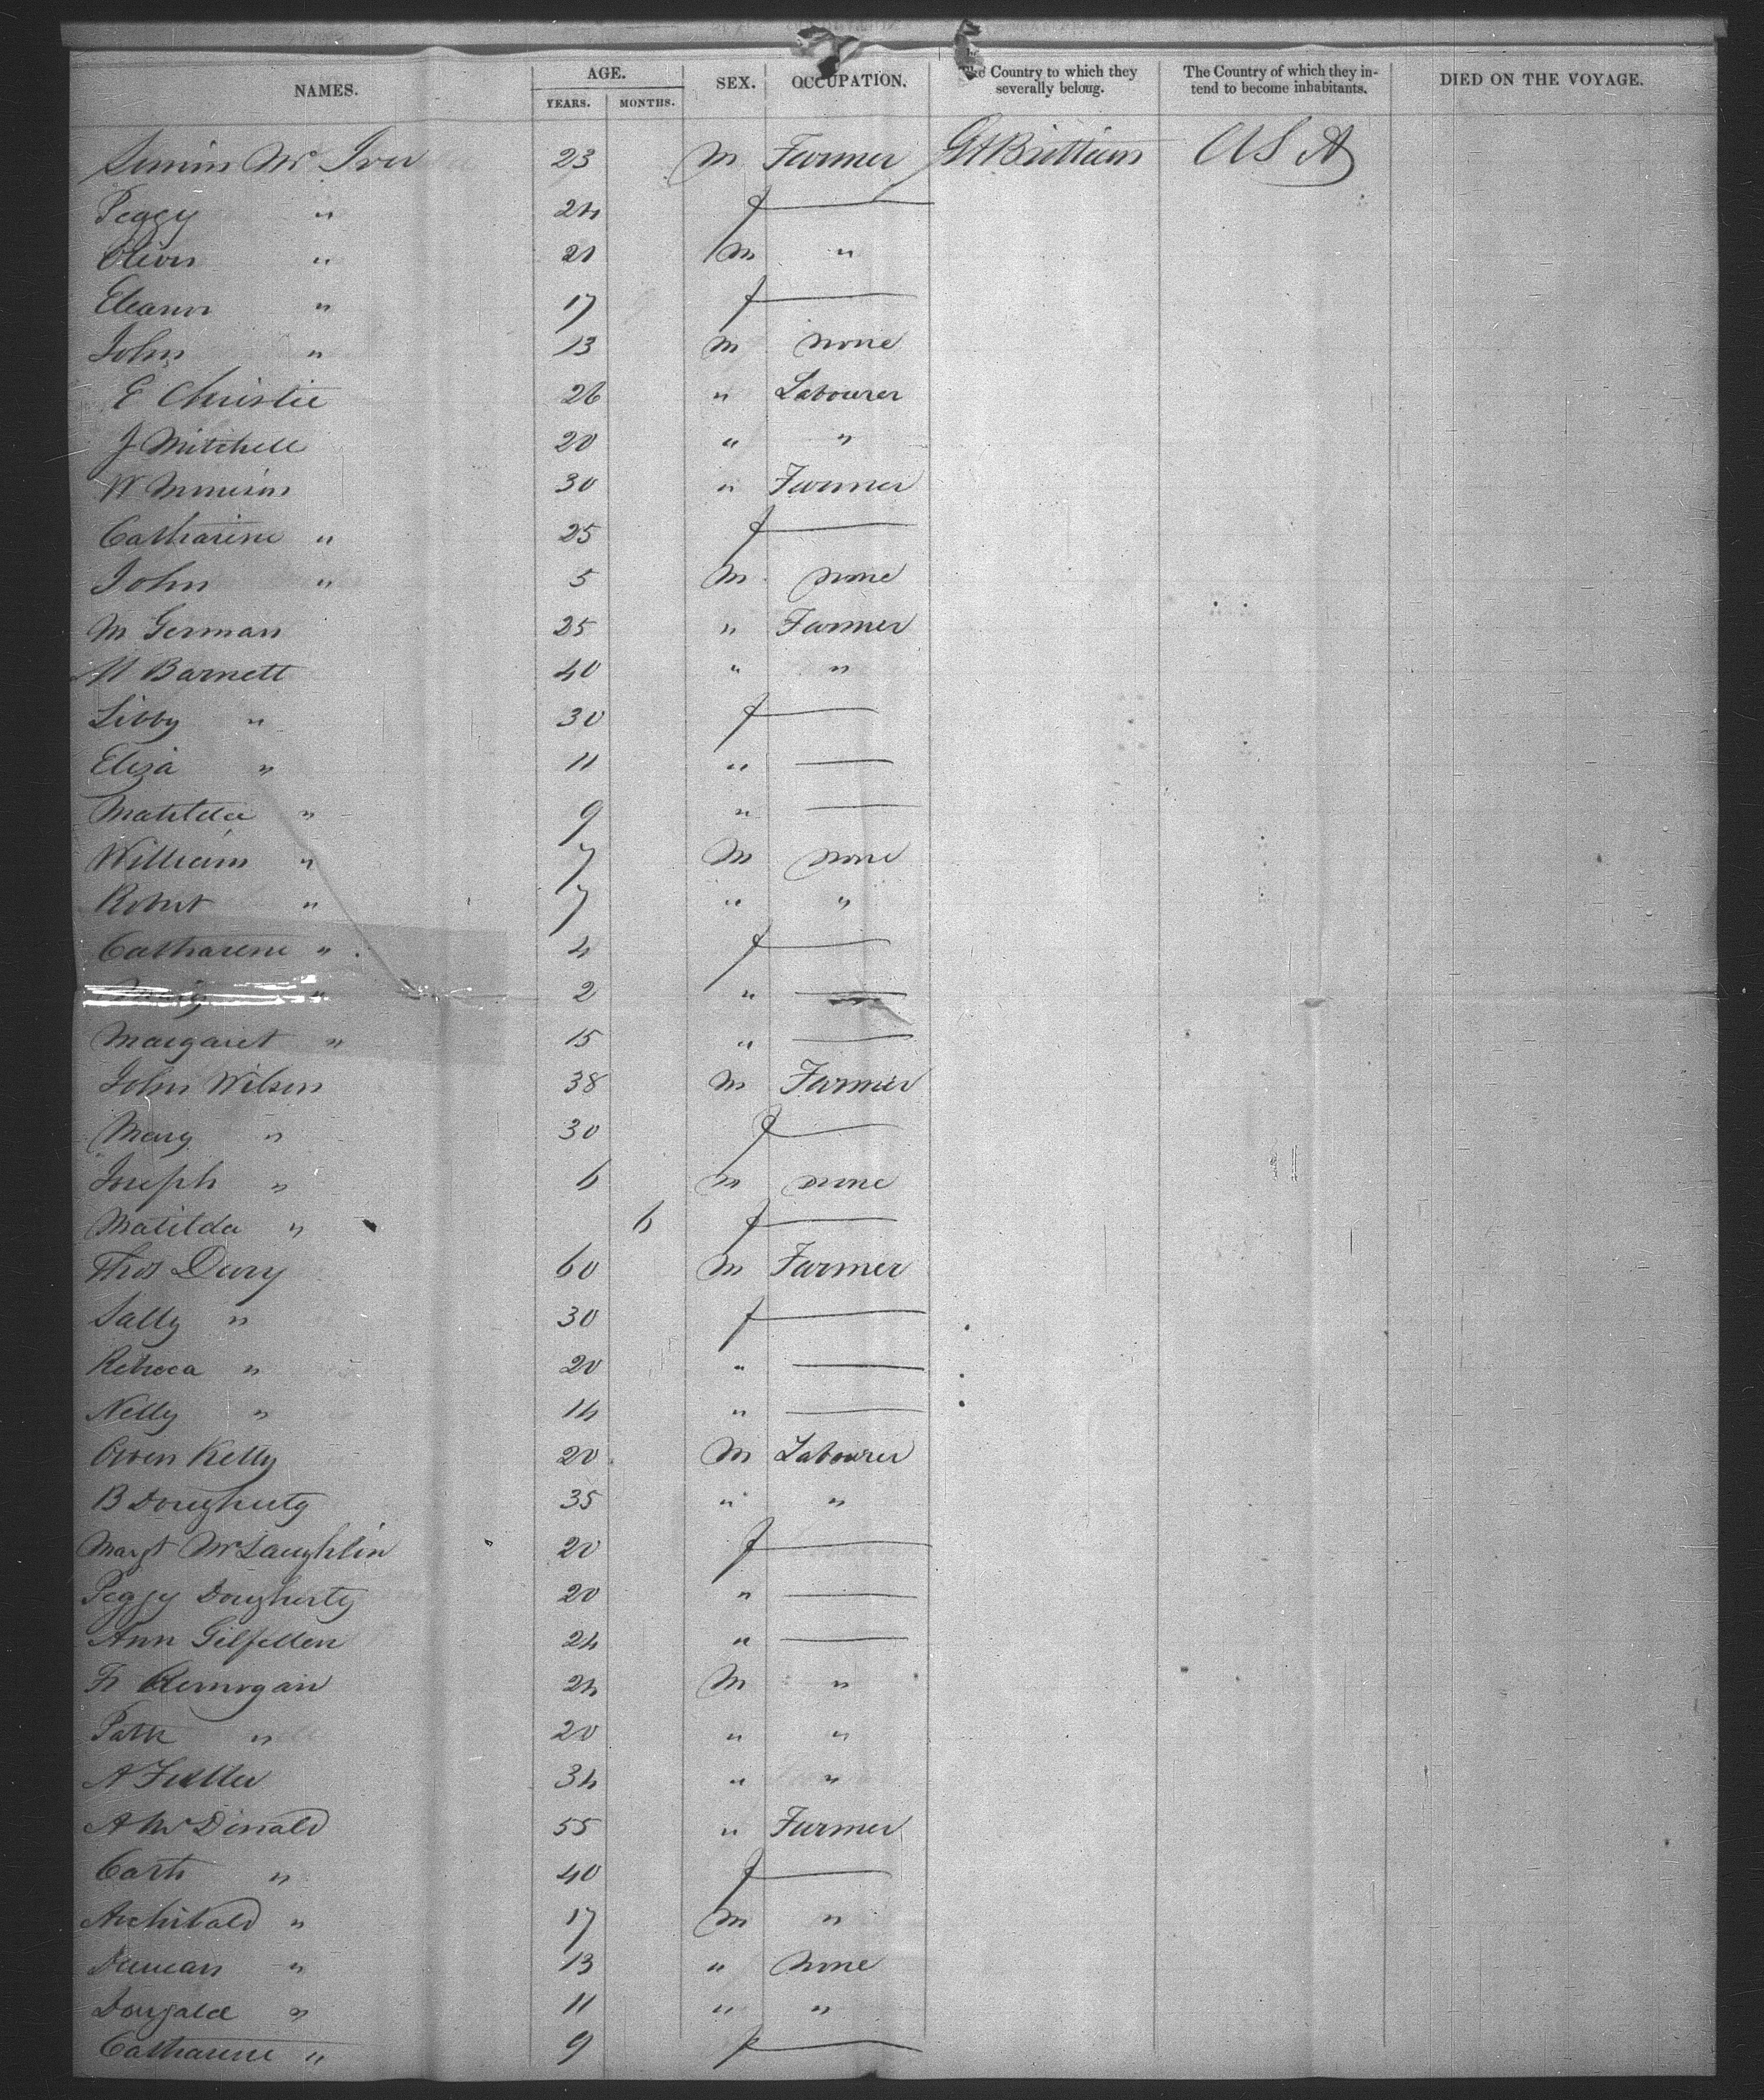 NAMES. AGE. SEX. OCCUPATION. The Country to which they severally belong. The Country of which they intend to become inhabitants. DIED ON THE VOYAGE.
YEARS. MONTHS.
Mc Iver 23 m Farmer Gt Brittian U S A
Peggy " 24 f —
Oliver " 21 m "
Eleanor " 17 f —
John " 13 m none
E Christie 26 " Labourer
J Mitchell 20 " "
W 30 " Farmer
Catharine " 25 f —
John " 5 m none
M German 25 " Farmer
Barnett 40 " "
Libby " 30 f —
Eliza " 11 " —
Matilda " 9 " —
William " 7 m none
Robert " 7 " "
Catharine " 4 f —
" 2 " —
Margaret " 15 " —
John Wilson 38 m Farmer
Mary " 30 f —
Joseph " 6 m none
Matilda " 6 f —
Thos 60 m Farmer
Sally " 30 f —
Rebecca " 20 " —
Nelly " 14 " —
Owen Kelly 20 m Labourer
B Dougherty 35 " "
Margt McLaughlin 20 f —
Peggy Dougherty 20 " —
Ann Gilfillen 24 " —
24 m "
Patk " 20 " "
A 34 " "
A McDonald 55 " Farmer
Cath " 40 f —
Archibald " 17 m "
Duncan " 13 " none
Dougald " 11 " "
Catharine " 9 f —